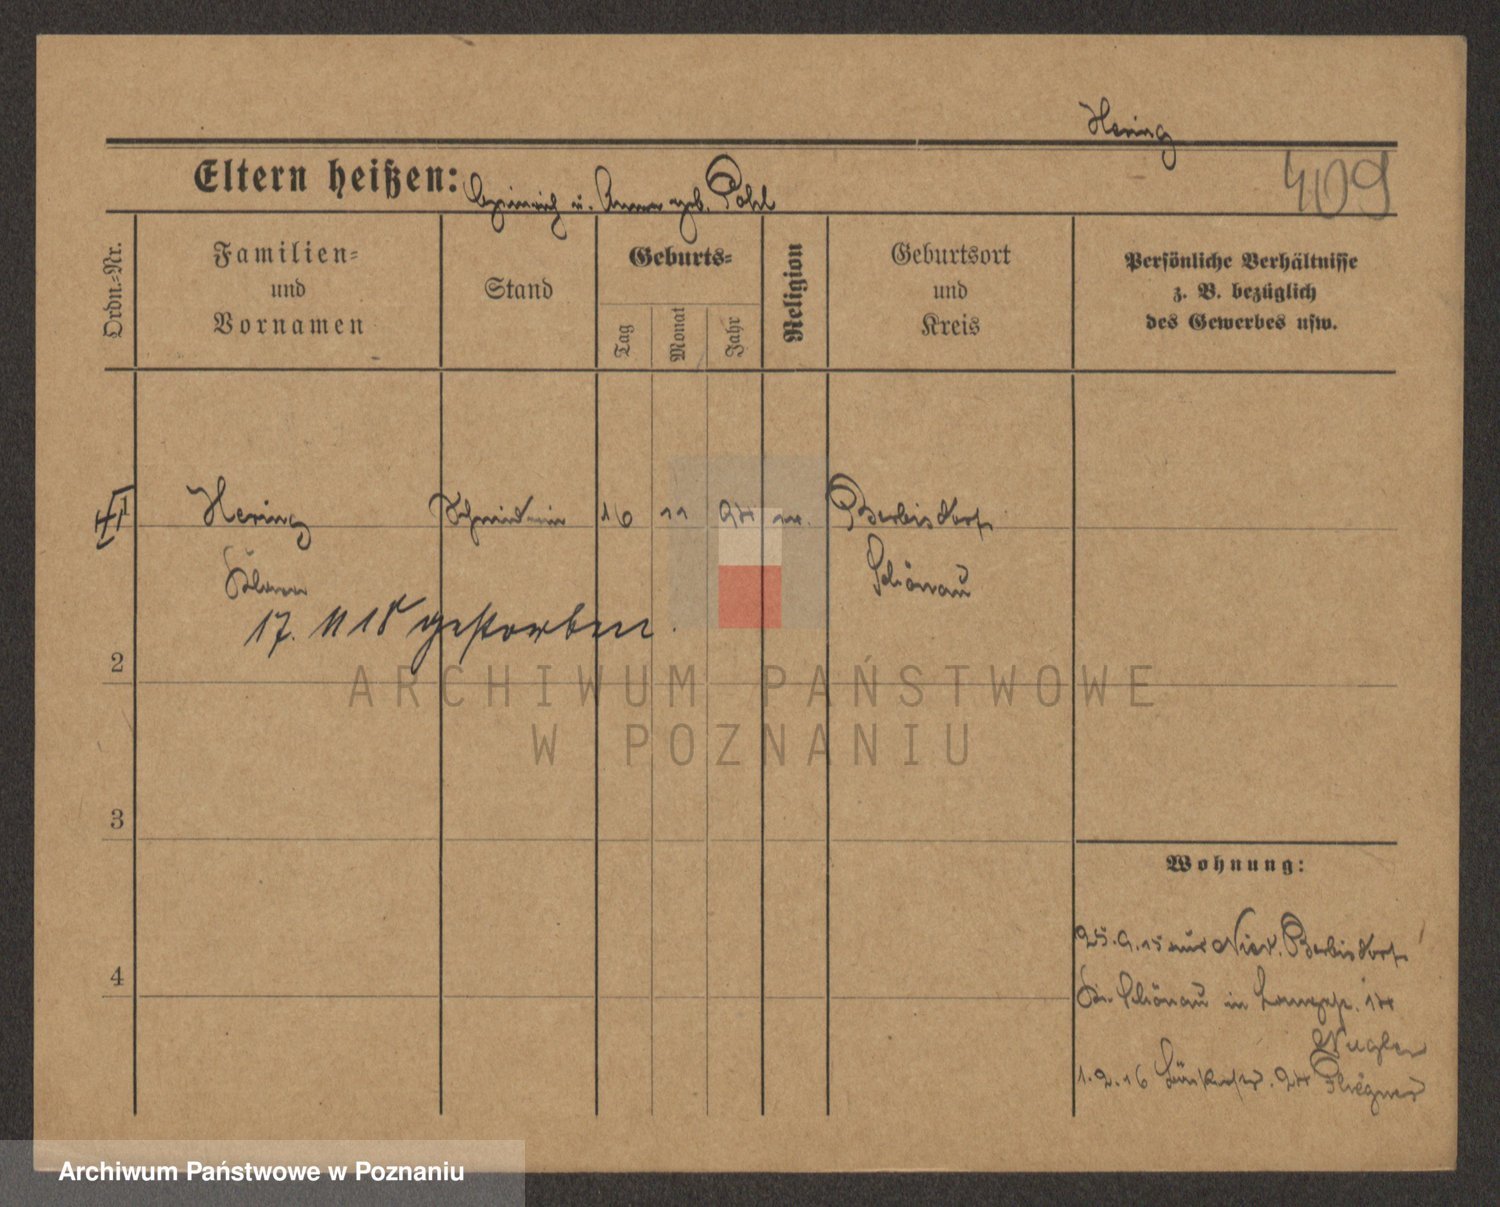 Hering
409
Eltern heißen: Heinrich u. Anna geb. Pohl
Ordn.-Nr.
Familien-
und
Vornamen
Stand
Geburts-
Tag
Monat
Jahr
Religion
Geburtsort
und
Kreis
Persönliche Verhältnisse
z. B. bezüglich
des Gewerbes usw.
1 Hering 16 11 94 Berbisdorf
Schönau
17. 11 18 gestorben.
2
ARCHIWUM PAŃSTWOWE
W POZNANIU
3
Wohnung:
25.9.15 aus Nied. Berbisdorf
4
Kr. Schönau in
1.2.16
Archiwum Państwowe w Poznaniu